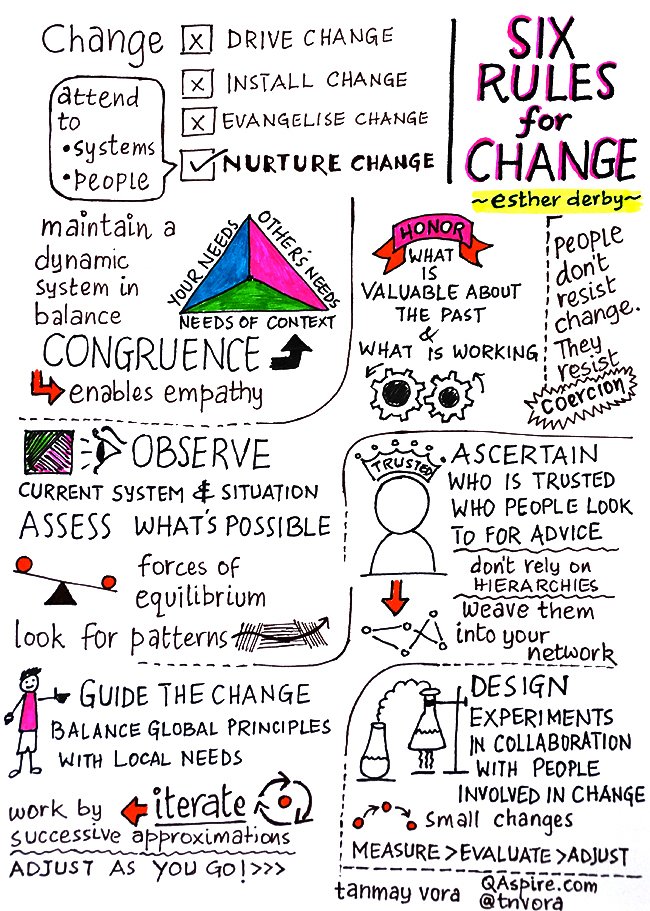 Change
X DRIVE CHANGE
X INSTALL CHANGE
X EVANGELISE CHANGE
NURTURE CHANGE
attend
to
• systems
• people
SIX
RULES
for
CHANGE
~esther derby~
maintain a
dynamic
system in
balance
YOUR NEEDS
OTHER'S NEEDS
NEEDS OF CONTEXT
CONGRUENCE
enables empathy
HONOR
WHAT
IS
VALUABLE ABOUT
THE PAST
&
WHAT IS WORKING
PEOPLE
don't
resist
change.
They
resist
COERCION
OBSERVE
CURRENT SYSTEM & SITUATION
ASSESS WHAT'S POSSIBLE
forces of
equilibrium
look for patterns
TRUSTED
ASCERTAIN
WHO IS TRUSTED
WHO PEOPLE LOOK
TO FOR ADVICE
don't rely on
HIERARCHIES
weave them
into your
network
GUIDE THE CHANGE
BALANCE GLOBAL PRINCIPLES
WITH LOCAL NEEDS
work by iterate
successive approximations
ADJUST AS YOU GO!>>>
DESIGN
EXPERIMENTS
IN COLLABORATION
WITH PEOPLE
INVOLVED IN CHANGE
small changes
MEASURE > EVALUATE > ADJUST
tanmay vora
QAspire.com
@tnvora